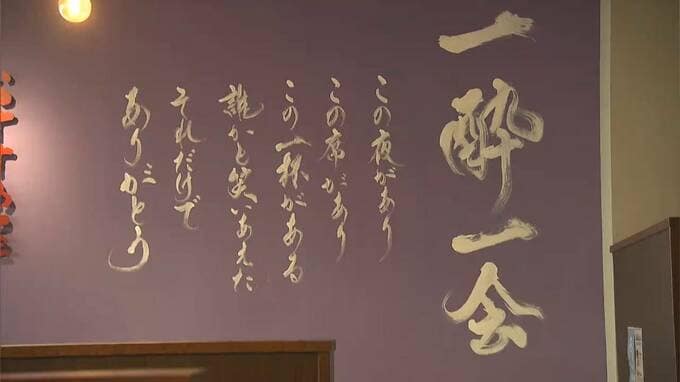 一酔一会
この夜があり
この席があり
この一杯がある
誰かと笑いあえた
それだけで
ありがとう